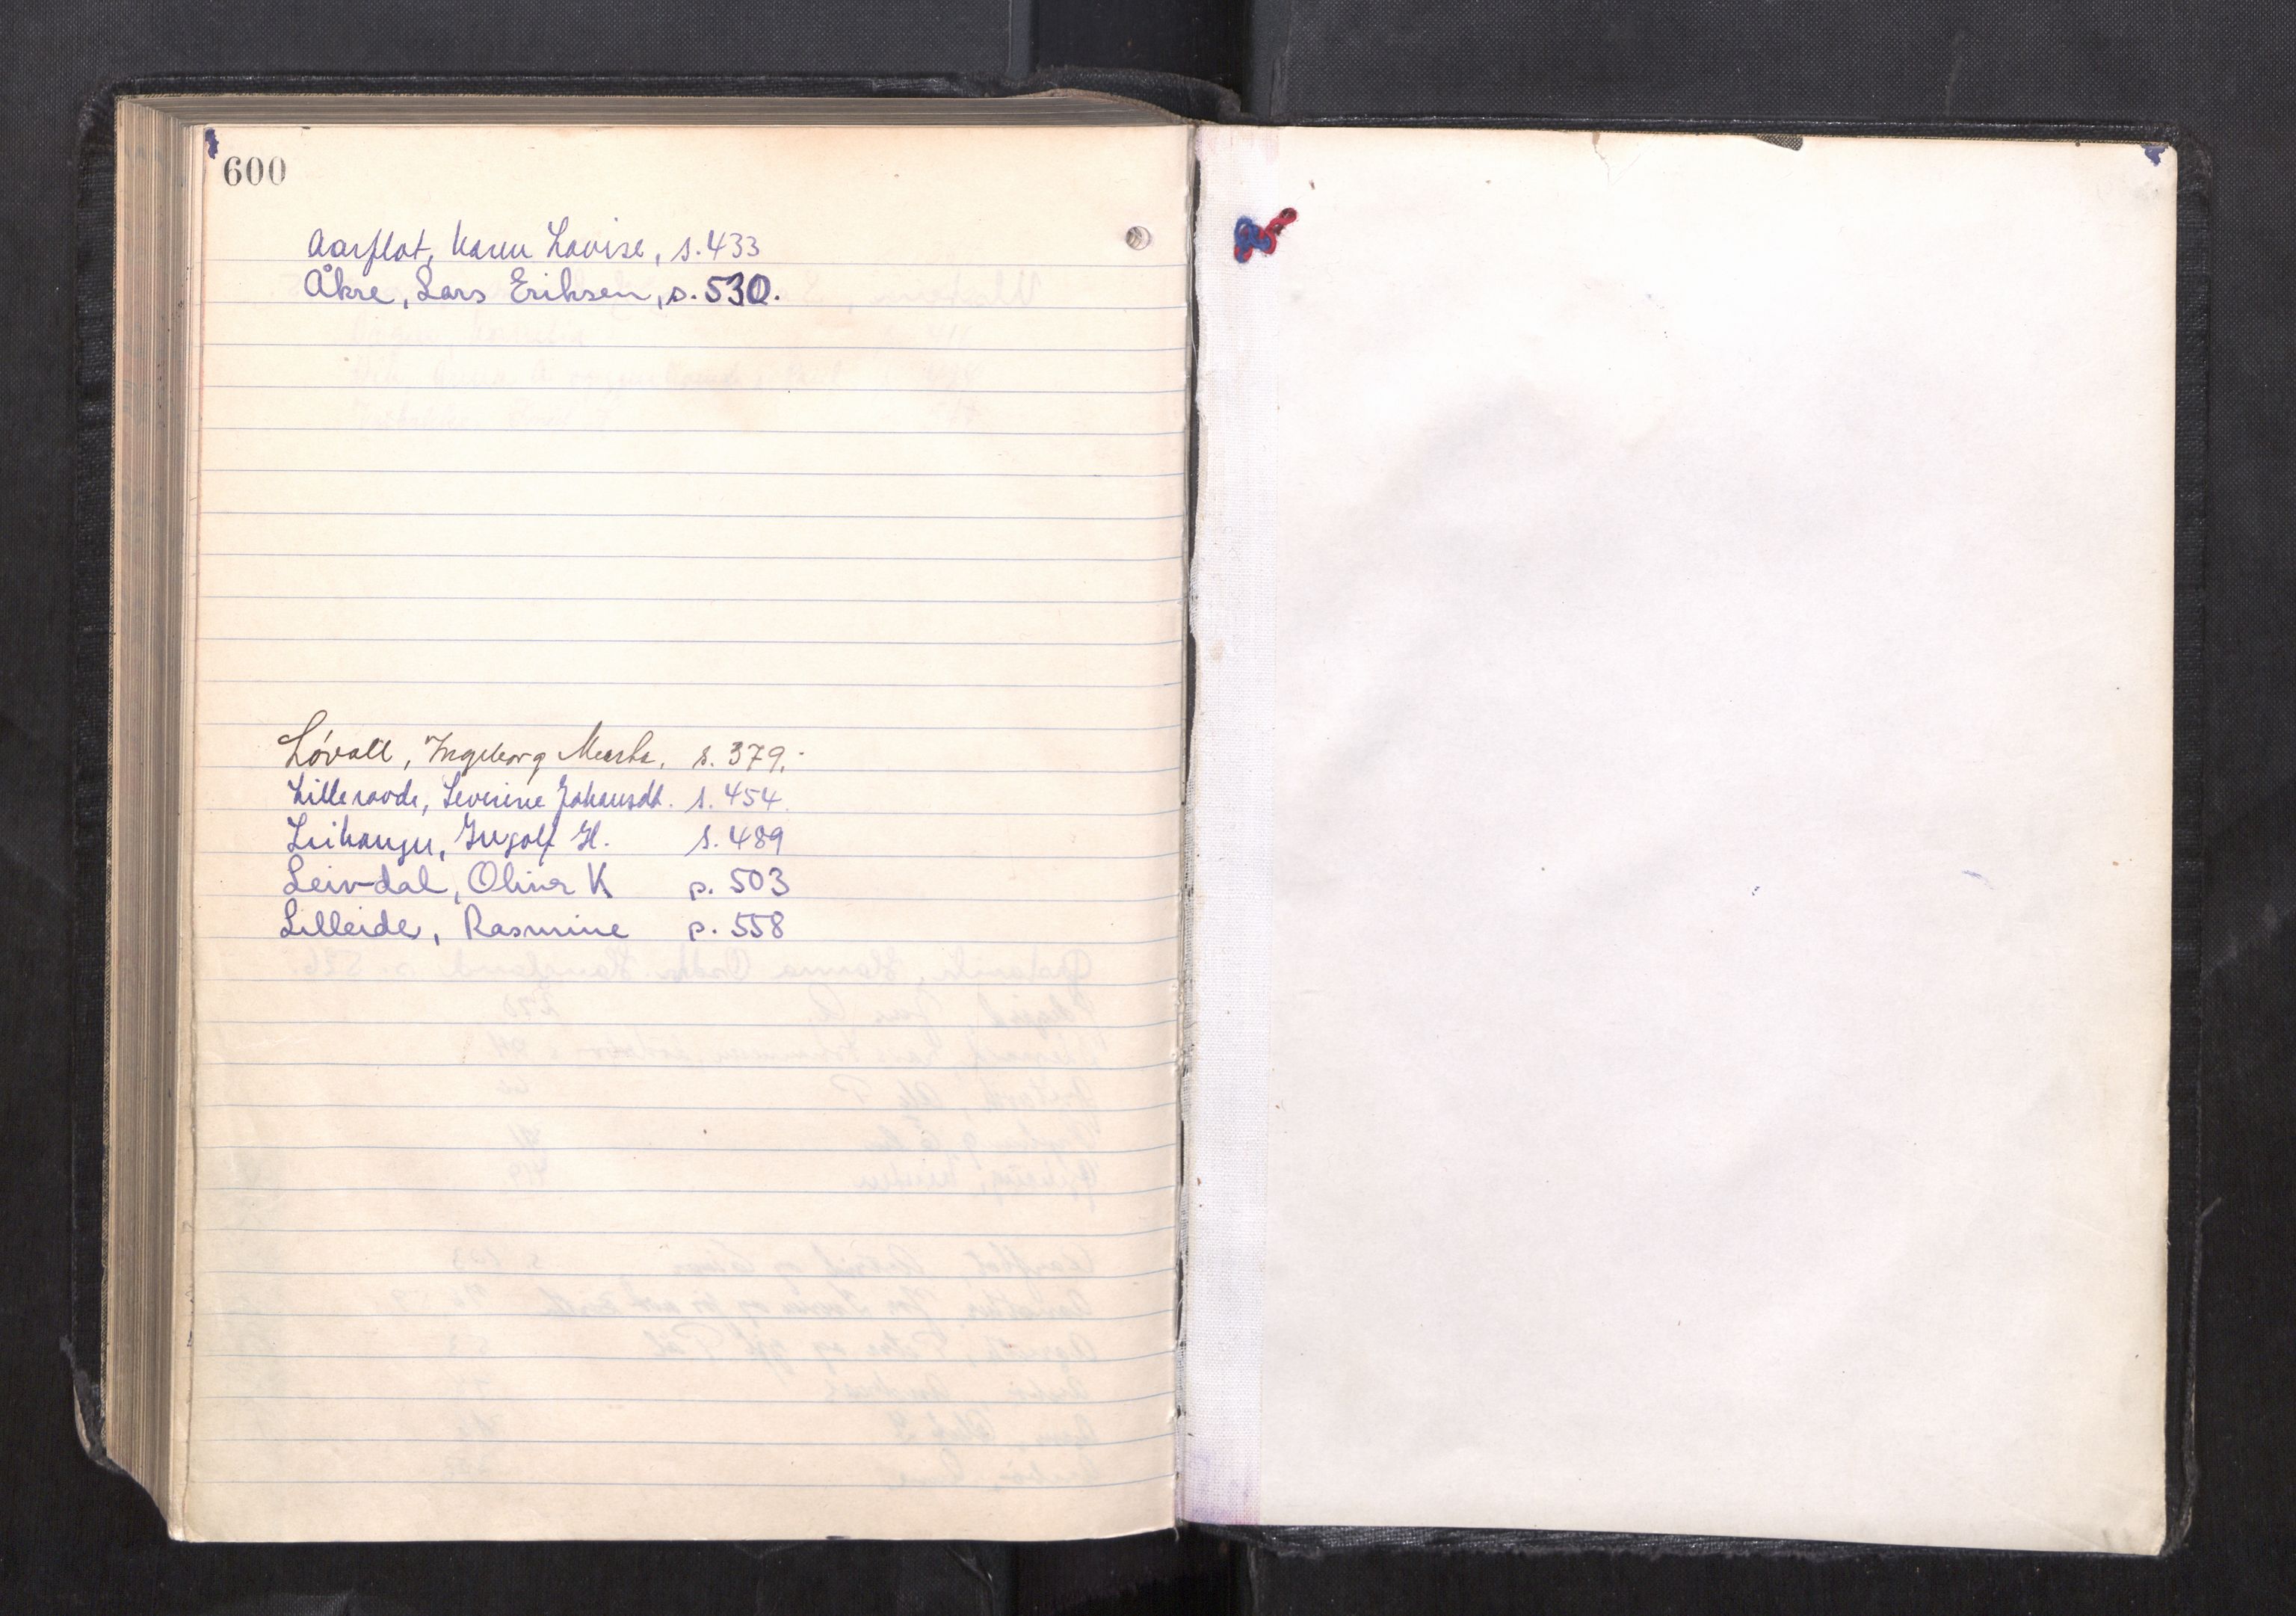 600
Aarflot, Karen Lovise, s. 433
Åkre, Lars Eriksen, s. 530.
Løvoll, Ingeborg Marta, s. 379.
Lillerovde, Severine Johansdt. s. 454.
Leikanger, Ingolf H. s. 489
Leivdal, Oliver K s. 503
Lilleide, Rasmine s. 558